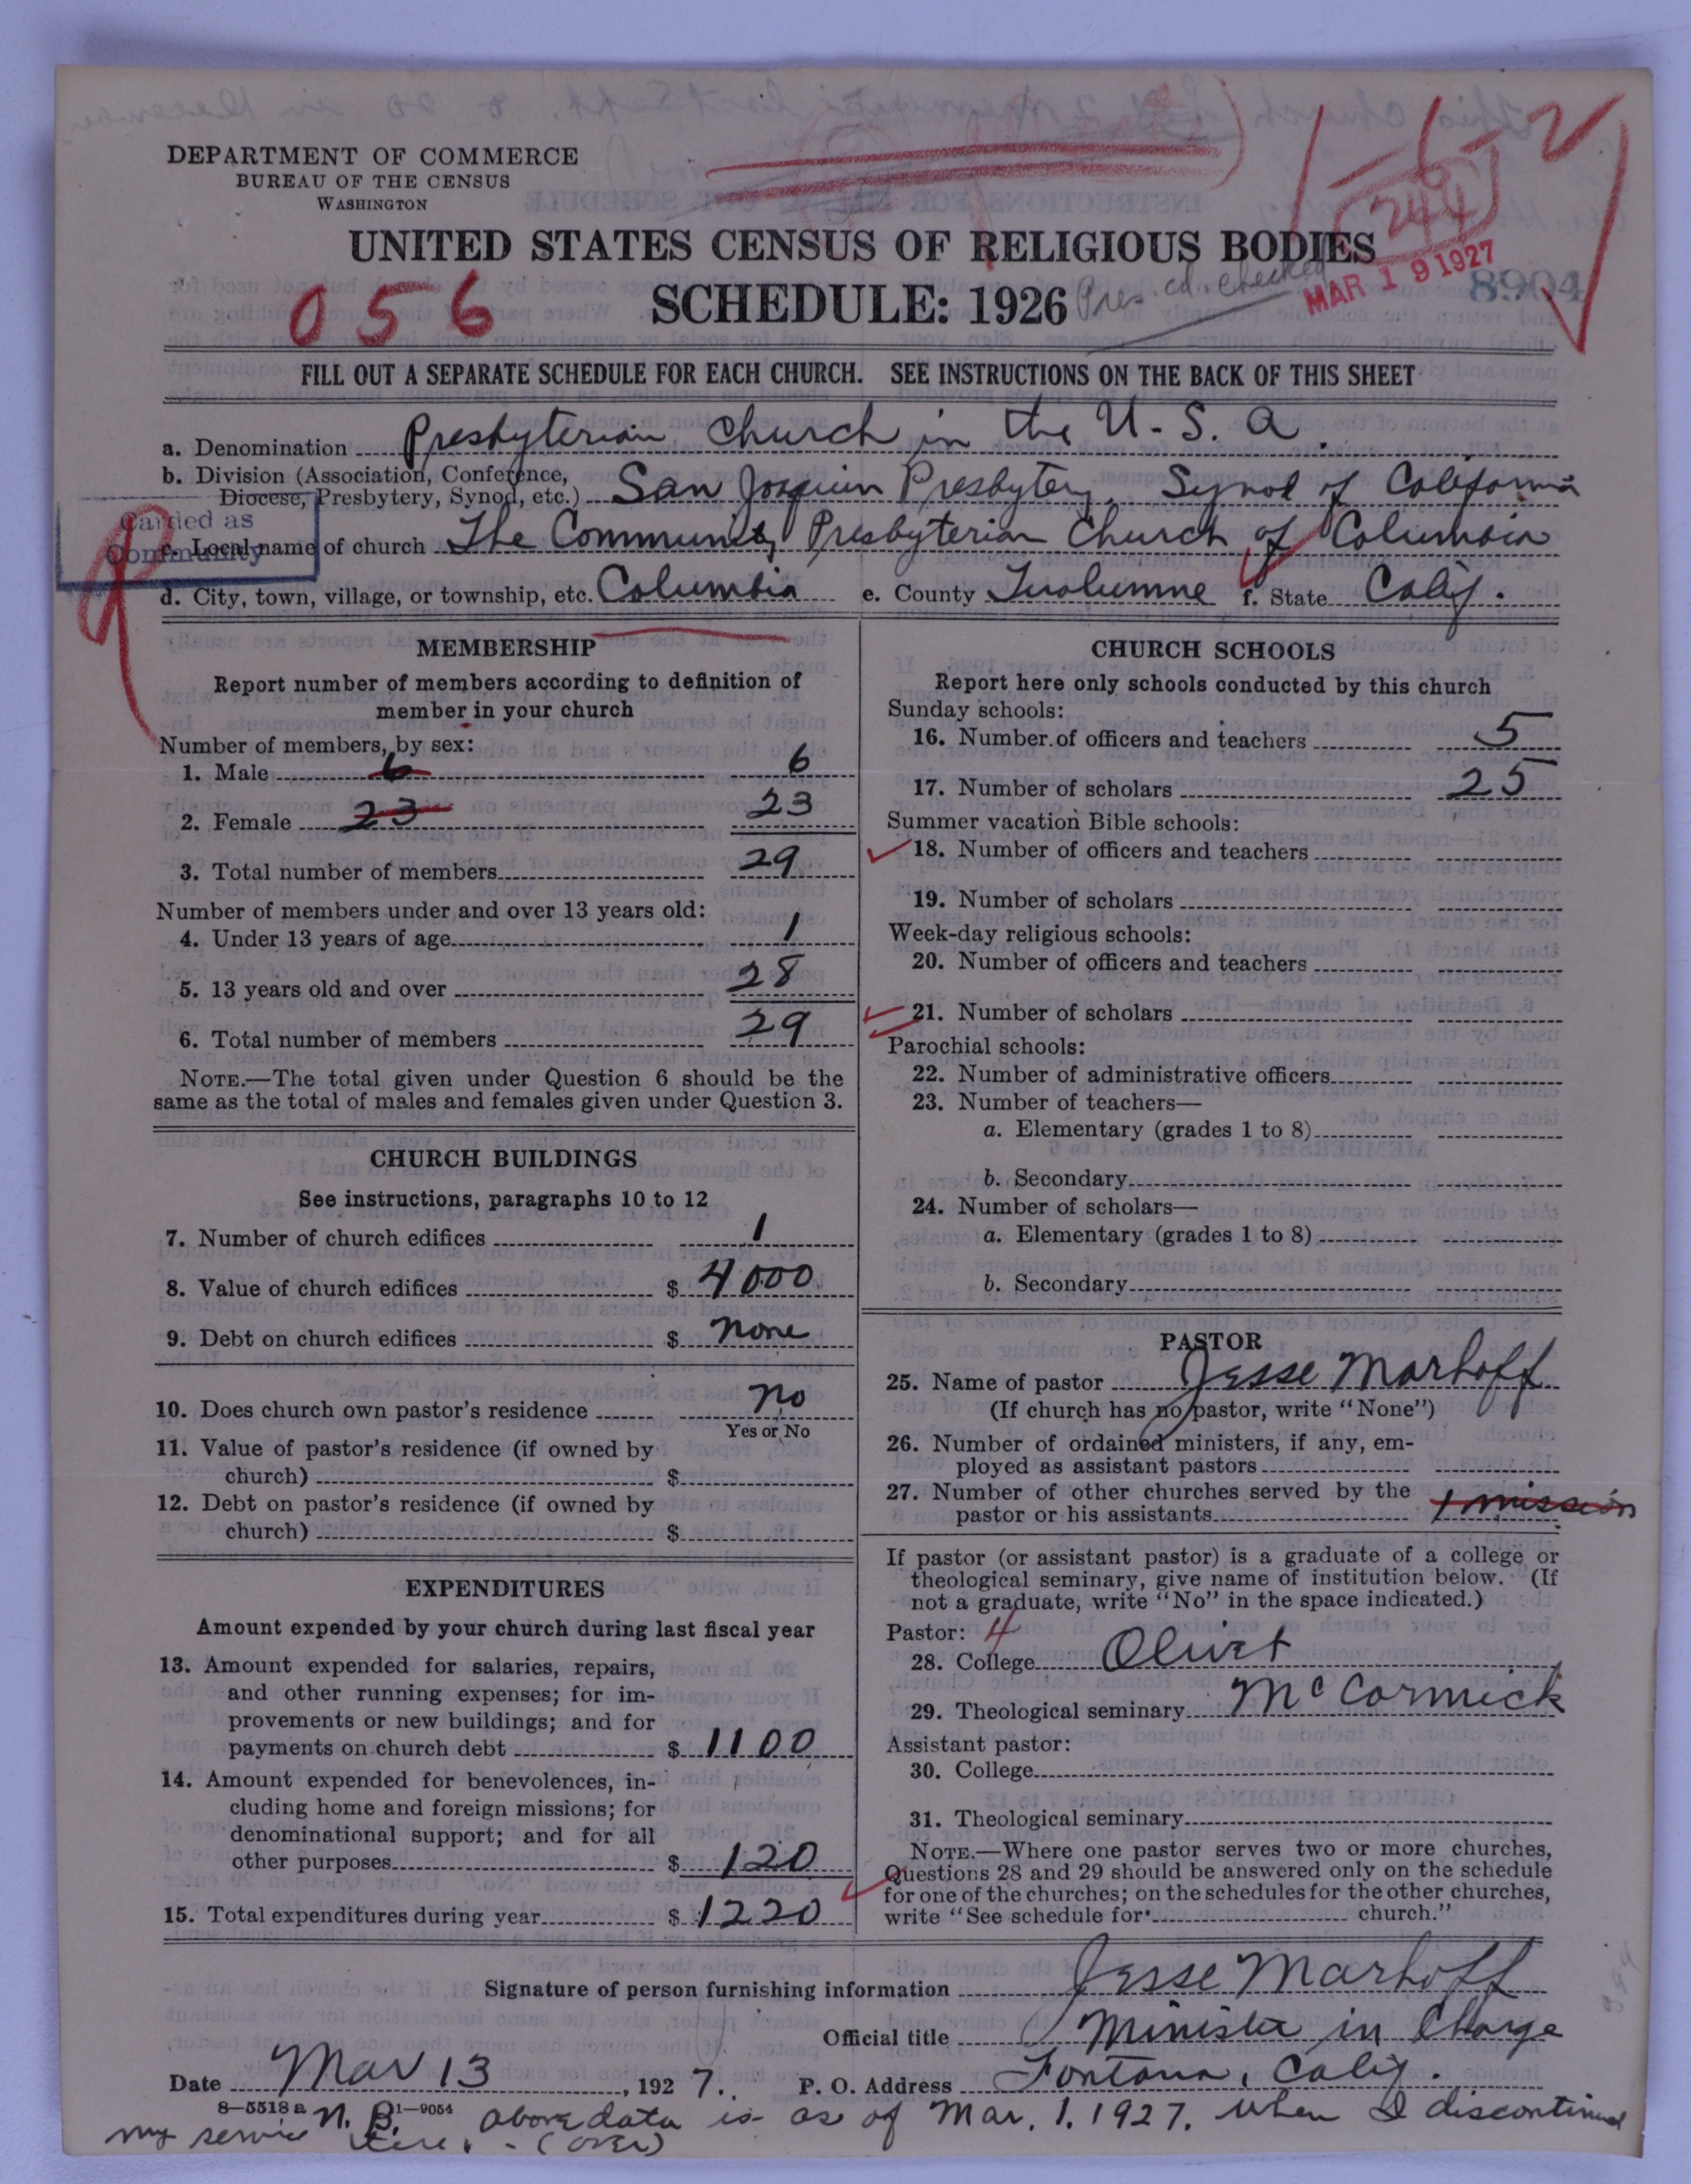 DEPARTMENT OF COMMERCE
BUREAU OF THE CENSUS
WASHINGTON
1-1-2
244
UNITED STATES CENSUS OF RELIGIOUS BODIES
MAR 19 1927
8904
056
SCHEDULE: 1926
Pres. cd. checked
FILL OUT A SEPARATE SCHEDULE FOR EACH CHURCH. SEE INSTRUCTIONS ON THE BACK OF THIS SHEET
a. Denomination Presbyterian Church in the U.S.A.
b. Division (Association, Conference,
Diocese, Presbytery, Synod, etc.) San Joaquin Presbytery, Synod of California
Carried as
Community
c. Local name of church The Community Presbyterian Church of Columbia
d. City, town, village, or township, etc. Columbia e. County Tuolumne f. State Calif.
MEMBERSHIP
Report number of members according to definition of
member in your church
Number of members, by sex:
1. Male 6 6
2. Female 23 23
3. Total number of members 29
Number of members under and over 13 years old:
4. Under 13 years of age 1
5. 13 years old and over 28
6. Total number of members 29
NOTE.—The total given under Question 6 should be the
same as the total of males and females given under Question 3.
CHURCH BUILDINGS
See instructions, paragraphs 10 to 12
7. Number of church edifices 1
8. Value of church edifices $ 4000
9. Debt on church edifices $ none
10. Does church own pastor's residence no
Yes or No
11. Value of pastor's residence (if owned by
church) $
12. Debt on pastor's residence (if owned by
church) $
EXPENDITURES
Amount expended by your church during last fiscal year
13. Amount expended for salaries, repairs,
and other running expenses; for im-
provements or new buildings; and for
payments on church debt $ 1100
14. Amount expended for benevolences, in-
cluding home and foreign missions; for
denominational support; and for all
other purposes $ 120
15. Total expenditures during year $ 1220
CHURCH SCHOOLS
Report here only schools conducted by this church
Sunday schools:
16. Number of officers and teachers 5
17. Number of scholars 25
Summer vacation Bible schools:
18. Number of officers and teachers
19. Number of scholars
Week-day religious schools:
20. Number of officers and teachers
21. Number of scholars
Parochial schools:
22. Number of administrative officers
23. Number of teachers—
a. Elementary (grades 1 to 8)
b. Secondary
24. Number of scholars—
a. Elementary (grades 1 to 8)
b. Secondary
PASTOR
25. Name of pastor Jesse Marhoff
(If church has no pastor, write "None")
26. Number of ordained ministers, if any, em-
ployed as assistant pastors
27. Number of other churches served by the
pastor or his assistants 1 mission
If pastor (or assistant pastor) is a graduate of a college or
theological seminary, give name of institution below. (If
not a graduate, write "No" in the space indicated.)
Pastor: 4
28. College Olivet
29. Theological seminary McCormick
Assistant pastor:
30. College
31. Theological seminary
NOTE.—Where one pastor serves two or more churches,
Questions 28 and 29 should be answered only on the schedule
for one of the churches; on the schedules for the other churches,
write "See schedule for church."
Signature of person furnishing information Jesse Marhoff
Official title Minister in Charge
Date Mar 13, 1927. P. O. Address Fontana, Calif.
8—5518 a 1—9054
N. B. above data is as of Mar. 1. 1927. when I discontinued
my service here. - (over)